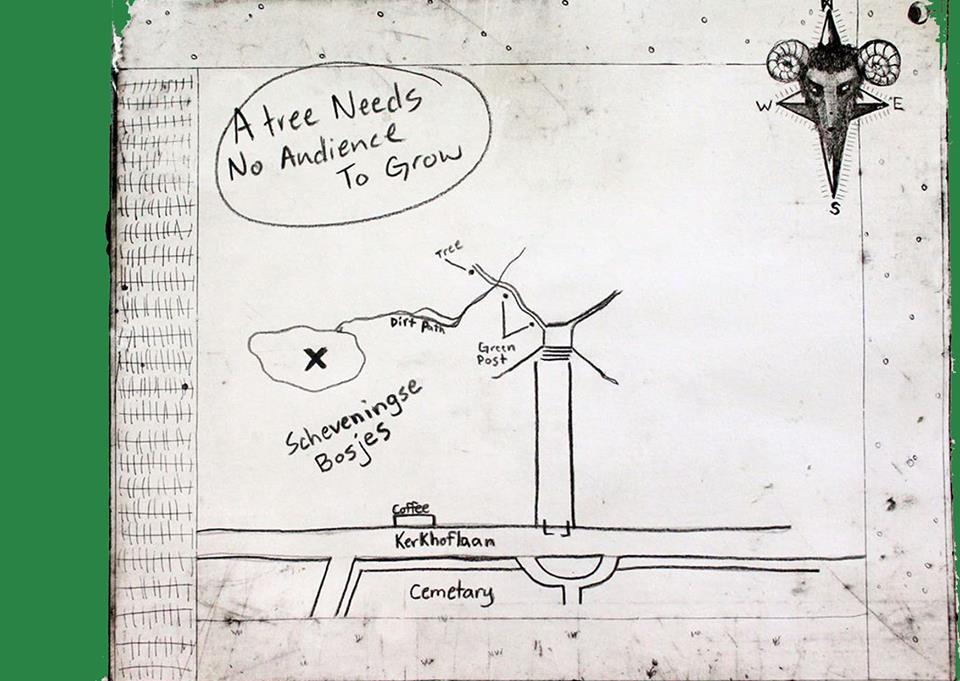 A tree Needs
No Audience
To Grow
N
W
E
S
Tree
Dirt Path
Green
Post
X
Scheveningse
Bosjes
Coffee
Kerkhoflaan
Cemetary